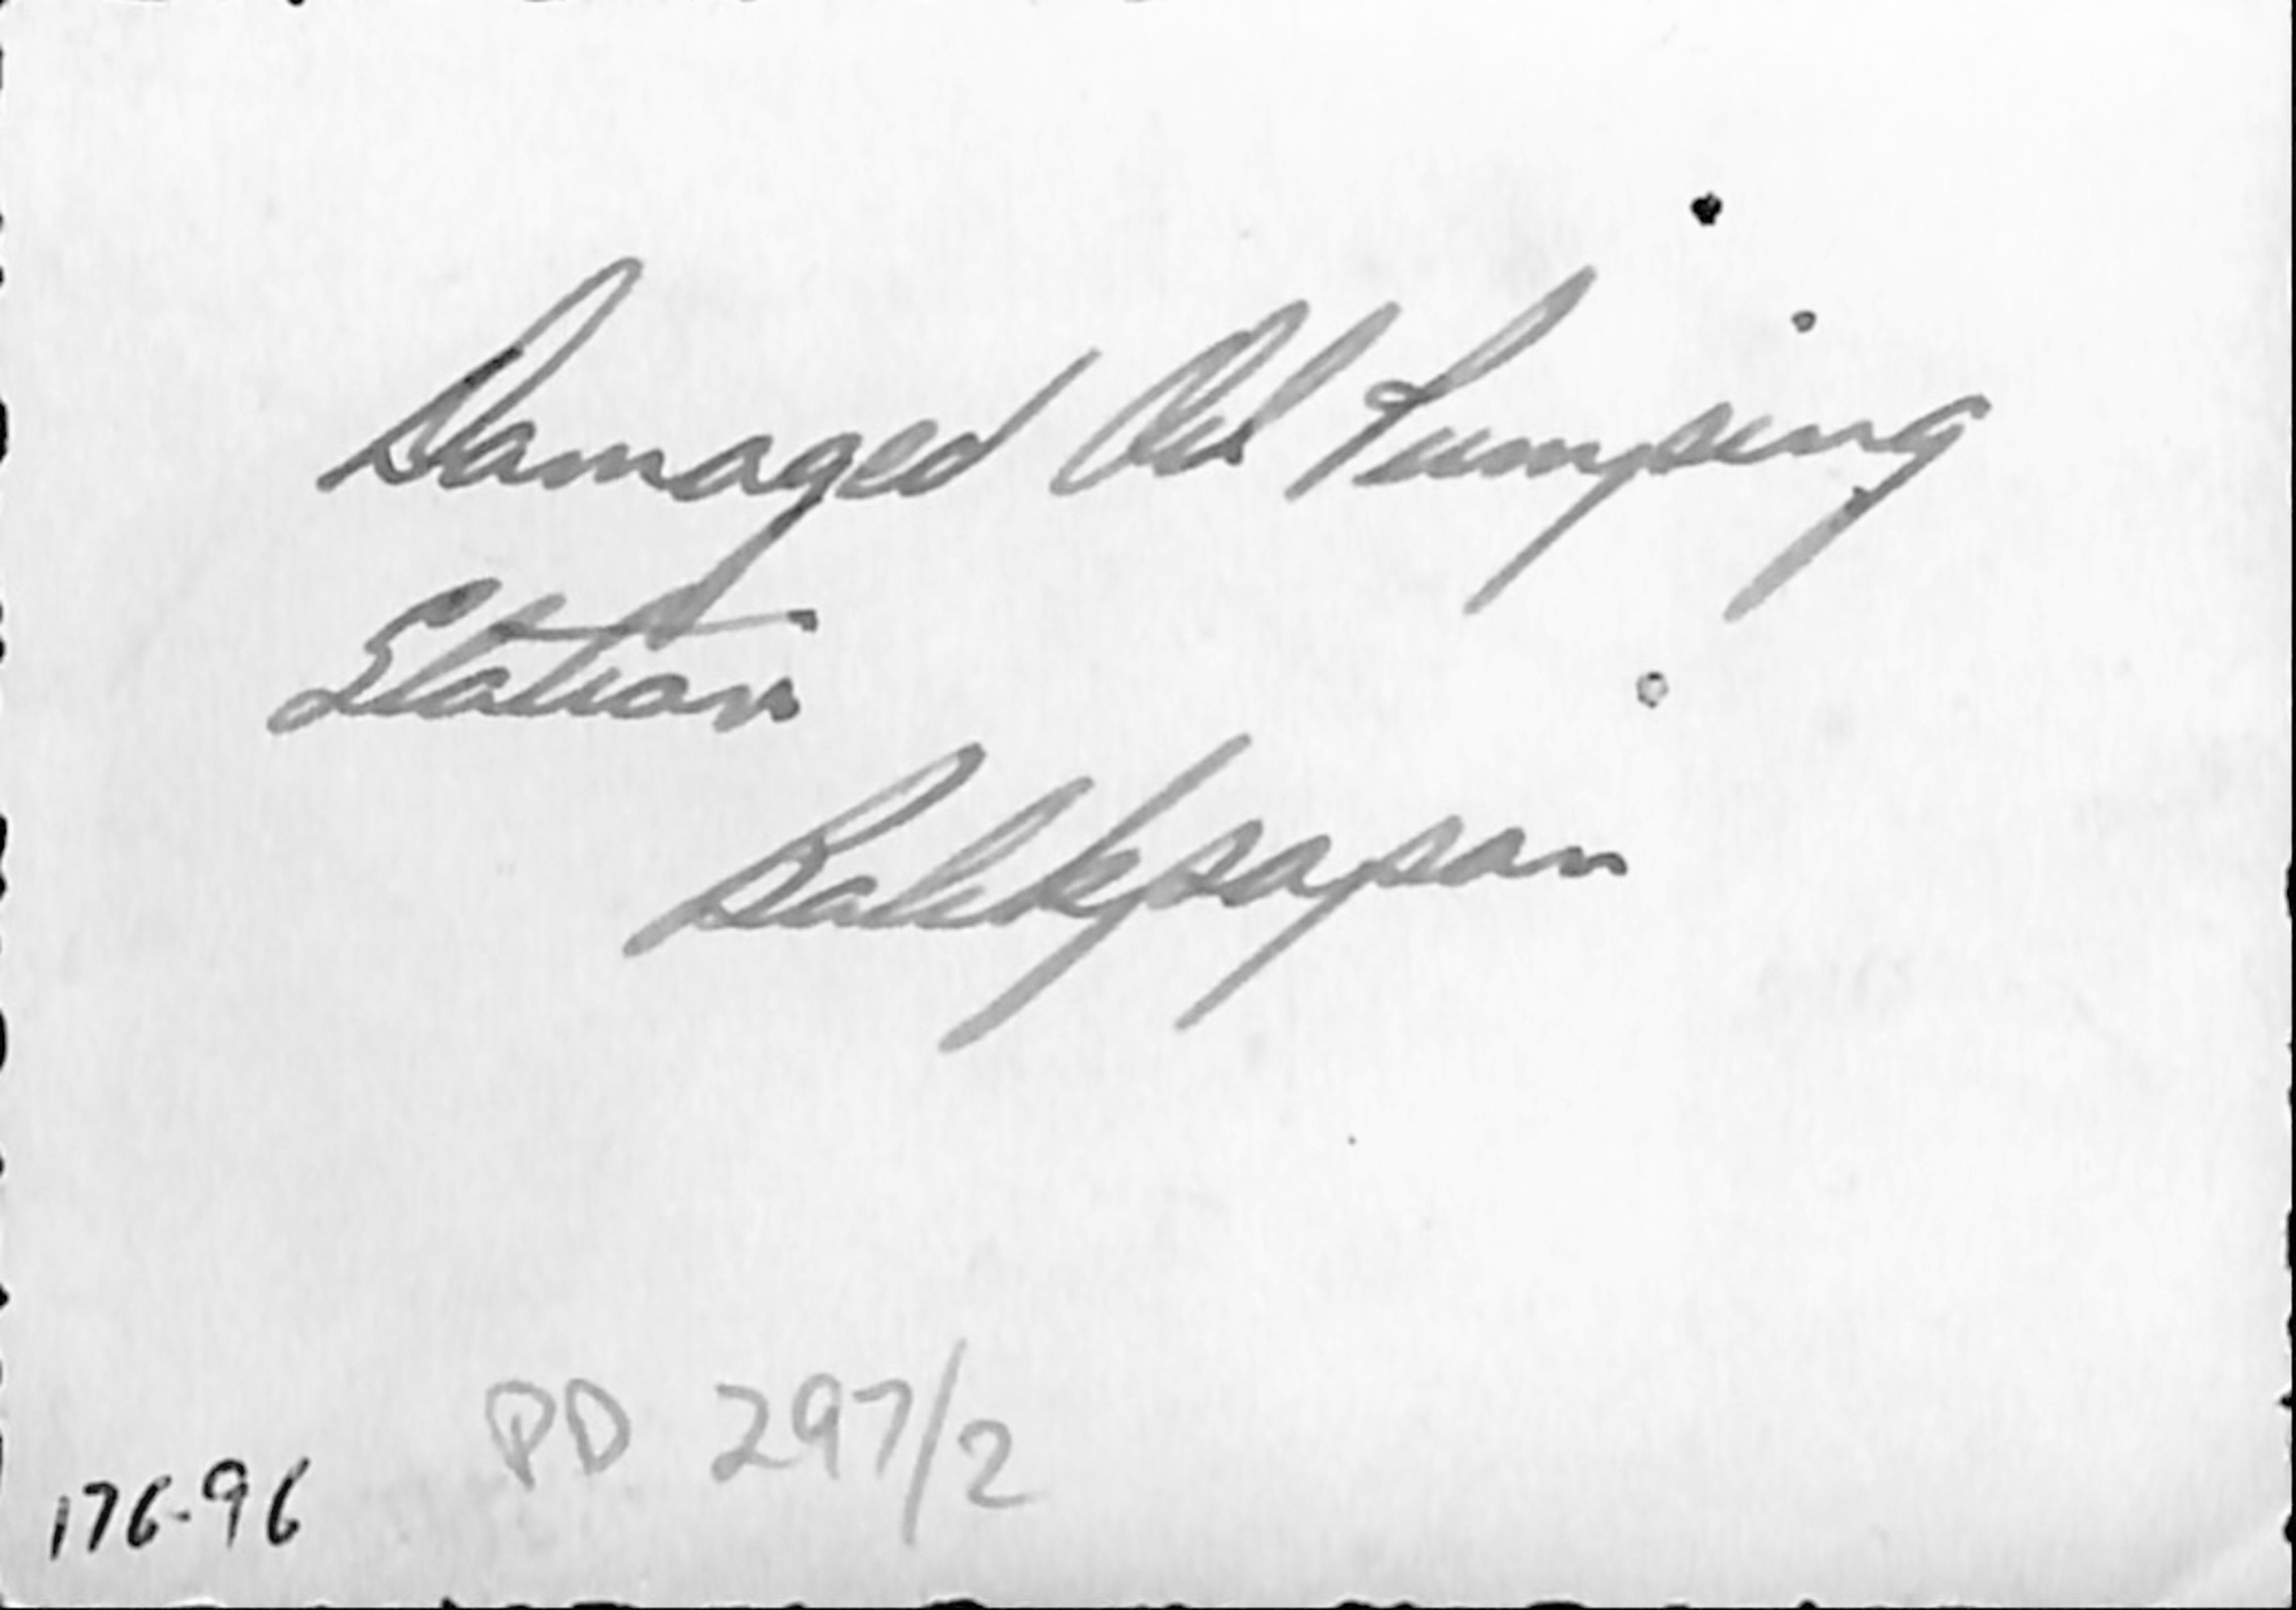 Damaged Oil Pumping
Station
Balikpapan
PD 297/2
176-96